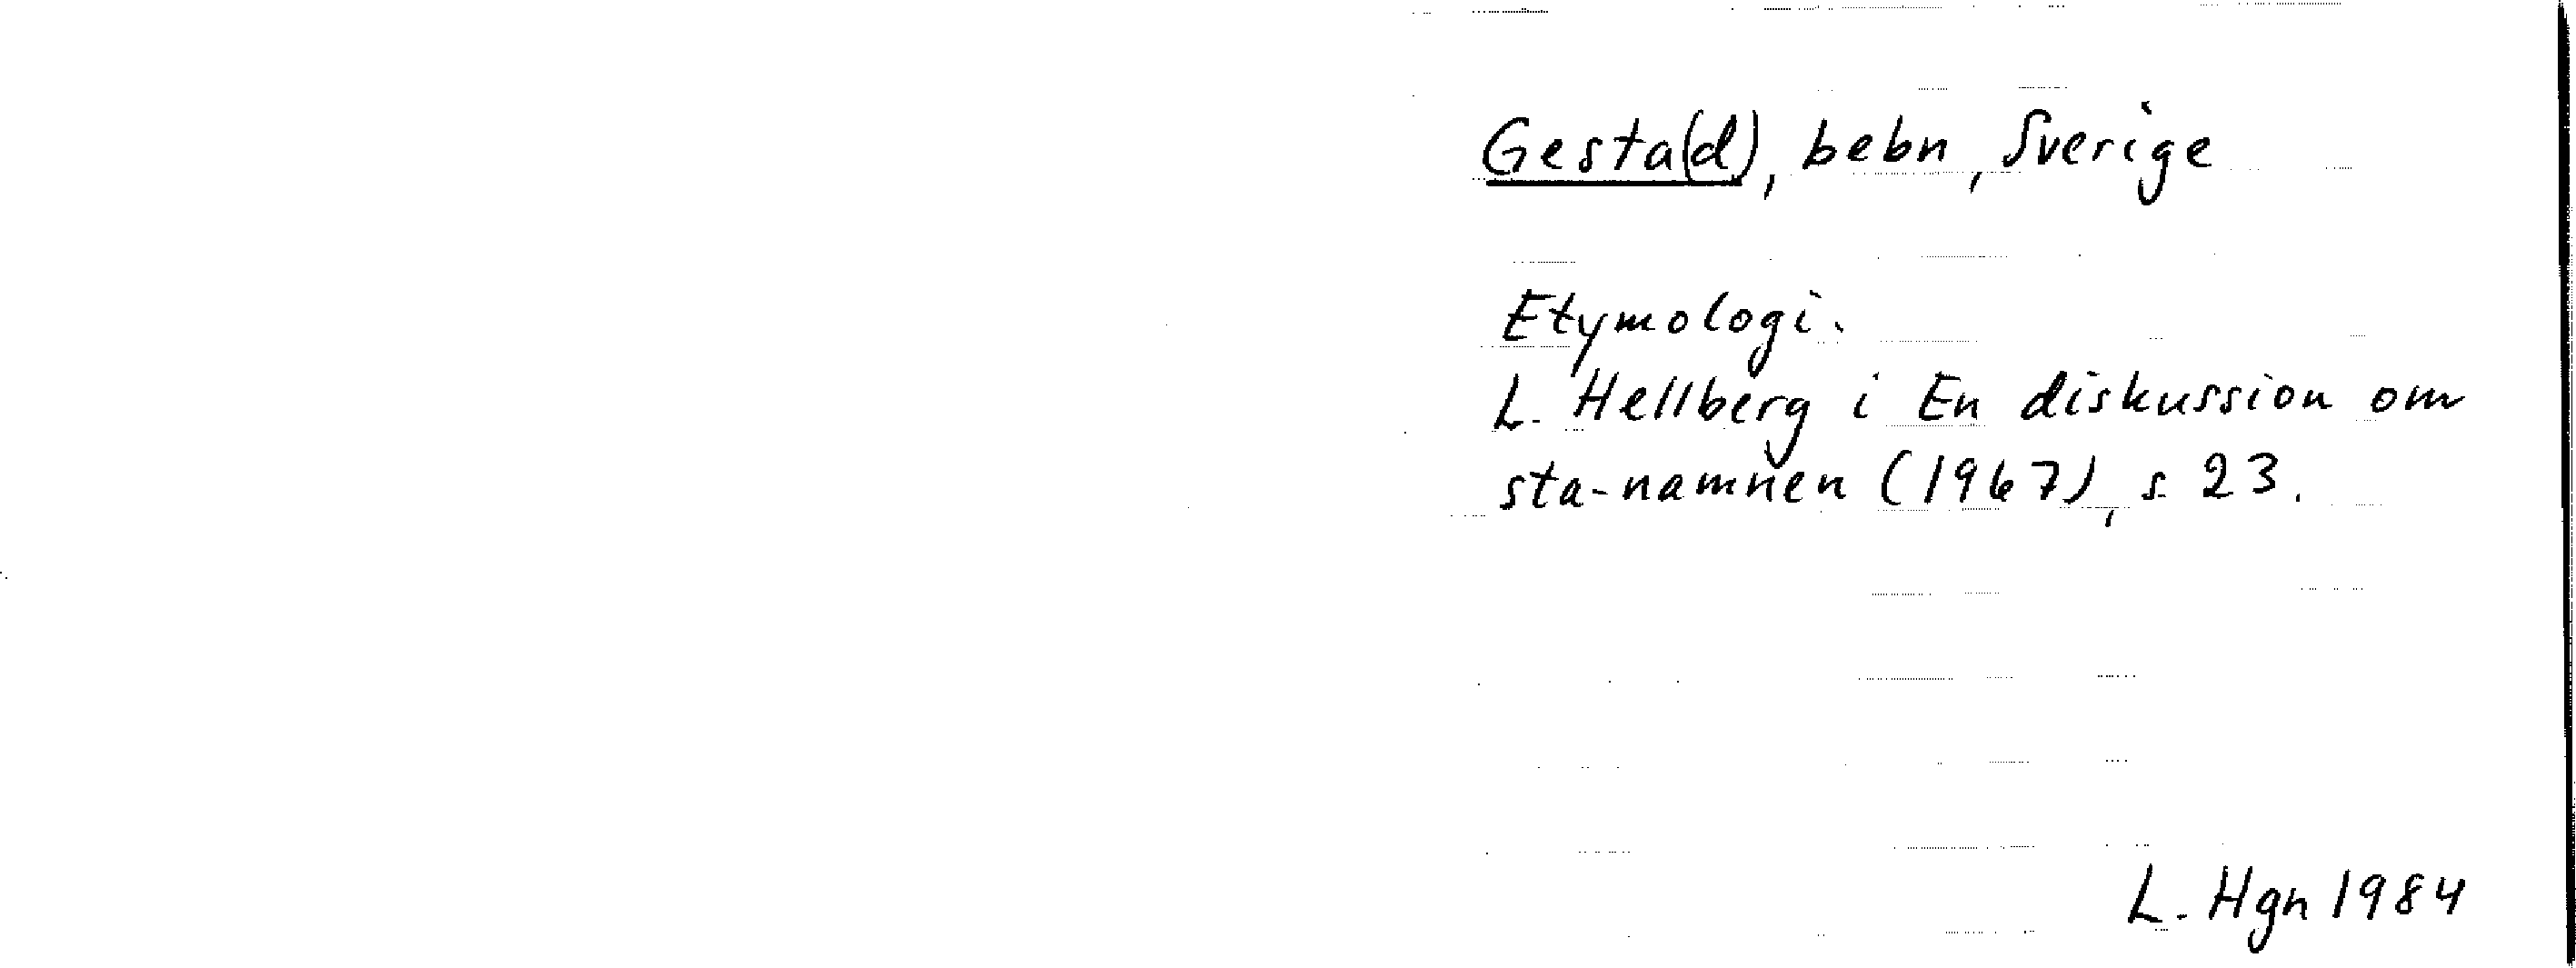 Gesta(d), bebn, Sverige
Etymologi.
L. Hellberg i En diskussion om
sta-namnen (1967), s 23.
L. Hgn 1984